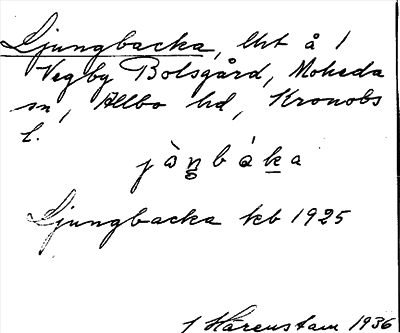 Ljungbacka, lht å 1
Vegby Bolsgård, Moheda
sn, Allbo hd, Kronobs
l.
jàŋbáka
Ljungbacka kb 1925
J Hårenstam 1936